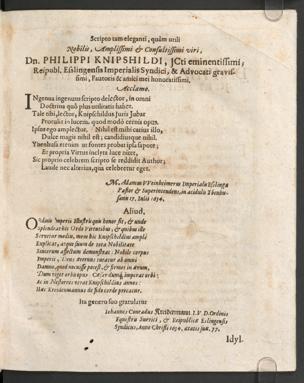 Scripto tam eleganti, quàm utili
Nobilis, Amplissimi & Consultissimi viri,
Dn. PHILIPPI KNIPSHILDI, JCti eminentissimi,
Reipubl. Eslingensis Imperialis Syndici, & Advocati gravis-
simi, Fautoris & amici mei honoratissimi,
Acclamo.
INgenua ingenuum scripto delector, in omni
Doctrina quô plus utilitatis habet.
Tale tibi, lector, Knipschildus Juris Jubar
Protulit in lucem. quod modò cernis opus.
Ipse ego amplector. Nihil est mihi carius illo,
Dulce magis nihil est; candidiusque nihil.
et propria Virtus inclyta luce nitet,
Sic proprio celebrem scripto se reddidit Author;
Laude nec alterius, qua celebretur eget.
M. Adamus VVeinheimerus Imperialis Eslingæ
Pastor & Superintendens, in acidulis
13. Julii 1654.
Aliud,
Imperii Illustris quis honor sit, & unde
Ordo Patribus, & quibus ille
medio, mens hic Knipschildius amplè
Explicat, atque suum de tota Nobilitate
Sincerum affectum demonstrat. Nobile corpus
Imperii, Deus æternùm tueatur ab omni
Damno, quod nocuisse potest, & firmet in ævum,
Ac in Nestoreos vivat Knipschildius annos:
Ita genero suo gratulatur
Iohannes Conradus Kreidemann I.V.D. Ordinis
Equestris Suevici, & Reipublicæ Eslingensis
Syndicus, Anno Christi 1654. ætatis suæ. 77.
Idyl.